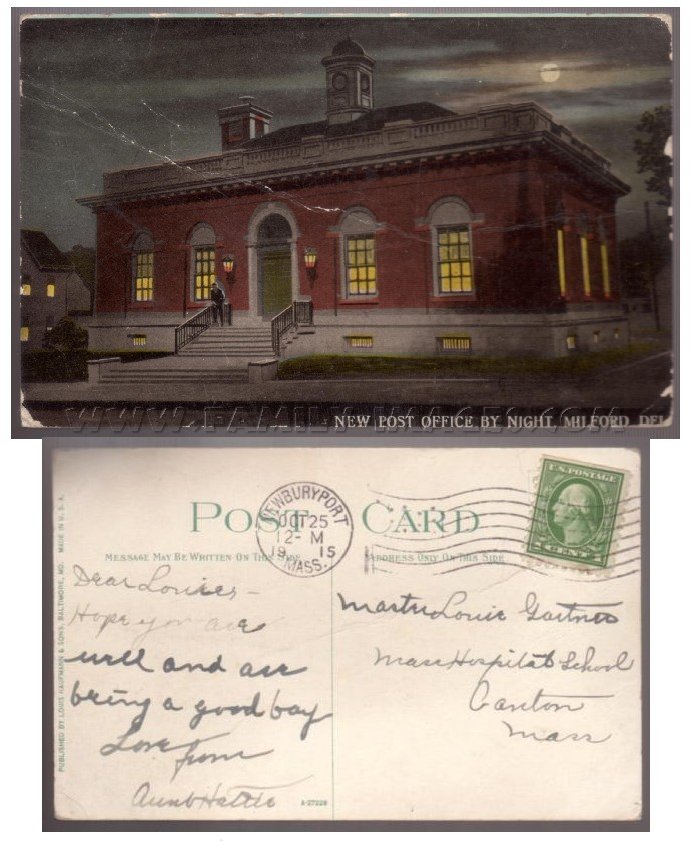 NEW POST OFFICE BY NIGHT, MILFORD DEL
WWW.FAMILY-IMAGES.COM
POST CARD
NEWBURYPORT
OCT 25
12-M
1915
MASS.
U.S. POSTAGE
1 CENT 1
MESSAGE MAY BE WRITTEN ON THIS SIDE
ADDRESS ONLY ON THIS SIDE
PUBLISHED BY LOUIS KAUFMANN & SONS, BALTIMORE, MD. MADE IN U.S.A.
Dear Louie –
Hope you are
well and are
being a good boy
Love from
Aunt Hattie
Master Louie Gartner
Mass Hospital School
Canton
Mass
A-27228